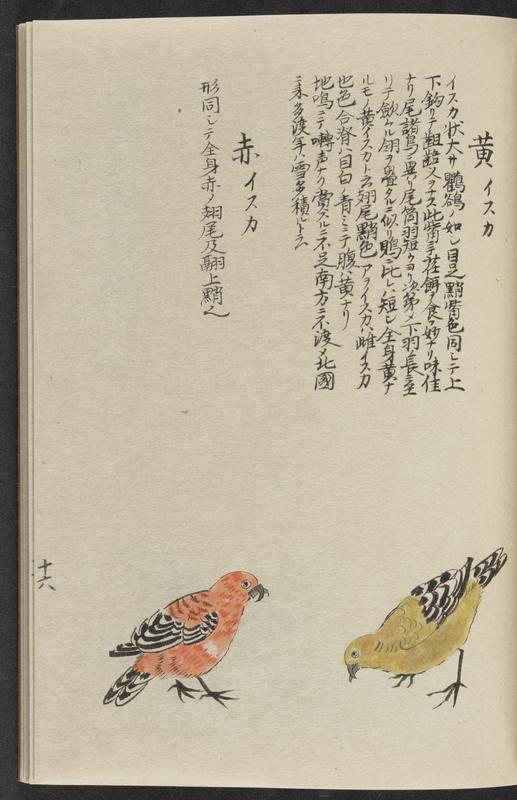 黄イスカ
イスカ状大サ鸜鵒ノ如シ目足黯紫色同シテ上
下鈎リテ齟齬ヲナス此觜ニテ荏餌ヲ食フ妙ナリ味佳
ナリ尾諸鳥ニ異リ尾筒羽短クヨリ次第〆下羽長
リテ翎ヲ畳タルニ似リ鵙ニ比レハ短シ全身黄ナ
ルモノ黄イスカト云翅尾黯色アヲイスカハ雌イスカ
也色合脊ハ目白ノ青ミニテ腹ハ黄ナリ
地鳴ニテ囀声ナク賞スルニ不足南方ニ不渡〆北國
ニ来多渡年ハ雪多積ルト云
赤イスカ
形同シテ全身赤ク翅尾及翮上黯
十六